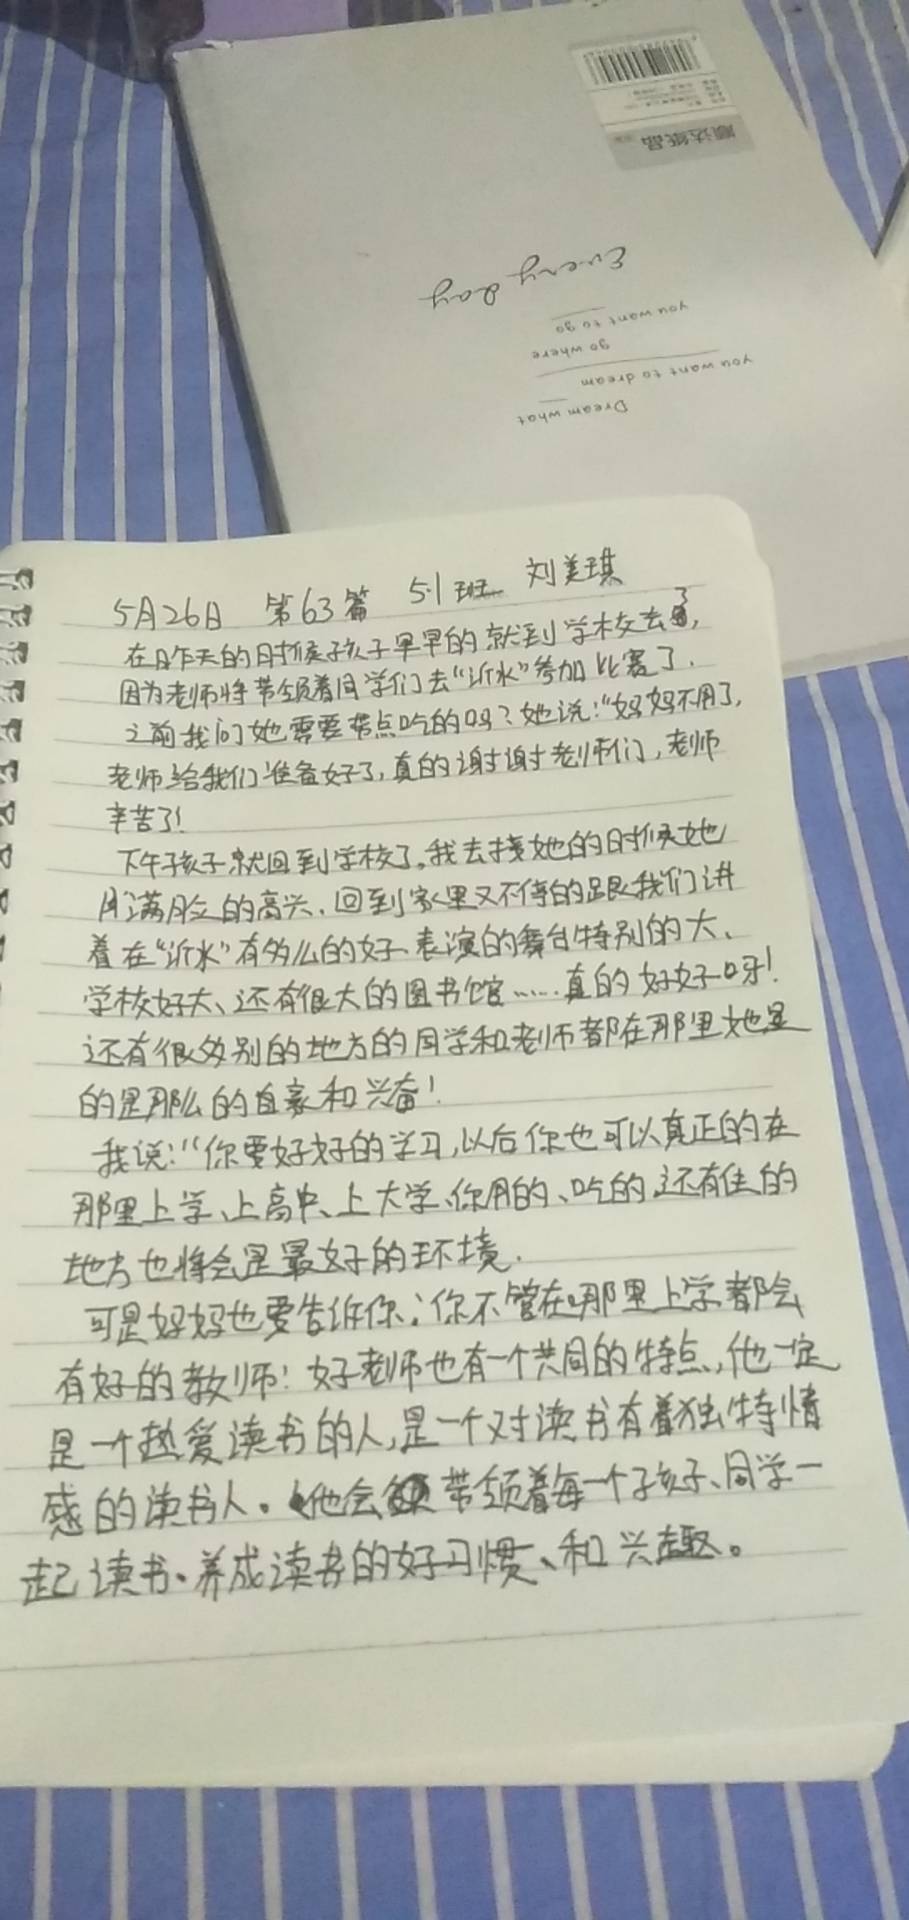 顺达纸品
Every day
you want to go
go where
you want to dream
Dream what
5月26日 第63篇 5.1班 刘美琪
在昨天的时候孩子早早的就到学校去了,
因为老师将带领着同学们去“沂水”参加比赛了.
之前我问她需要带点吃的吗?她说:“妈妈不用了,
老师给我们准备好了,真的谢谢老师们,老师
辛苦了!
下午孩子就回到学校了。我去接她的时候她
满脸的高兴、回到家里又不停的跟我们讲
着在“沂水”有多么的好、表演的舞台特别的大、
学校好大、还有很大的图书馆……真的好好呀!
还有很多别的地方的同学和老师都在那里她是
的是那么的自豪和兴奋!
我说:“你要好好的学习,以后你也可以真正的在
那里上学、上高中、上大学、你用的、吃的还有住的
地方也将会是最好的环境.
可是妈妈也要告诉你:你不管在哪里上学都会
有好的教师!好老师也有一个共同的特点,他一定
是一个热爱读书的人,是一个对读书有着独特情
感的读书人。他会带领着每一个孩子、同学一
起读书、养成读书的好习惯、和兴趣。